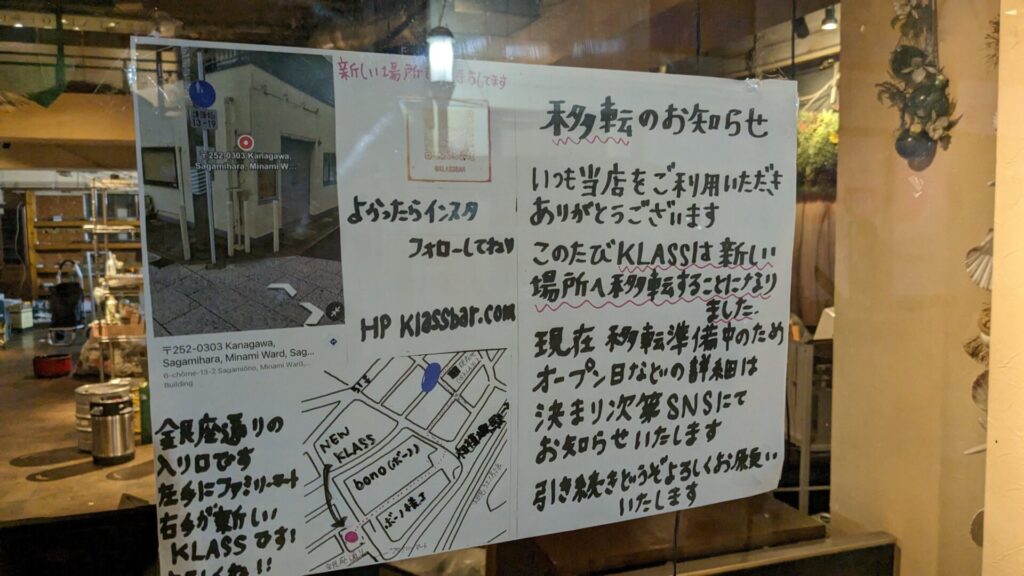 新しい場所
してます
移転のお知らせ
いつも当店をご利用いただき
ありがとうございます
このたびKLASSは新しい
場所へ移転することになり
ました
現在 移転準備中のため
オープン日などの詳細は
決まり次第SNSにて
お知らせいたします
引き続きどうぞよろしくお願い
いたします
よかったらインスタ
フォローしてね
HP klassbar.com
〒252-0303 Kanagawa,
Sagamihara, Minami W...
〒252-0303 Kanagawa,
Sagamihara, Minami Ward, Sag...
6-chōme-13-2 Sagamiōno, Minami Ward,...
Building
銀座通りの
入り口です
左手にファミリーマート
右手が新しい
KLASSです!
NEW
KLASS
bono(ボーノ)